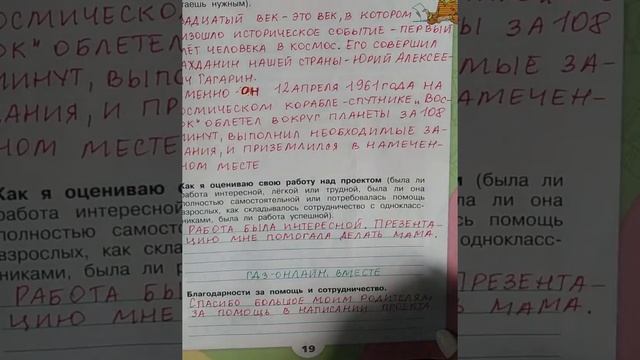 таешь нужным).
АДЦАТЫЙ ВЕК - ЭТО ВЕК, В КОТОРОМ
ИЗОШЛО ИСТОРИЧЕСКОЕ СОБЫТИЕ - ПЕРВЫЙ
ЛЁТ ЧЕЛОВЕКА В КОСМОС. ЕГО СОВЕРШИЛ
АЖДАНИН НАШЕЙ СТРАНЫ - ЮРИЙ АЛЕКСЕЕ-
Ч ГАГАРИН.
МЕННО ОН 12 АПРЕЛЯ 1961 ГОДА НА
ОСМИЧЕСКОМ КОРАБЛЕ - СПУТНИКЕ „ВОС-
ОК" ОБЛЕТЕЛ ВОКРУГ ПЛАНЕТЫ ЗА 108
МИНУТ, ВЫПОЛНИЛ НЕОБХОДИМЫЕ ЗА-
АНИЯ, И ПРИЗЕМЛИЛСЯ В НАМЕЧЕН-
НОМ МЕСТЕ
Как я оцениваю свою работу над проектом (была ли
работа интересной, лёгкой или трудной, была ли она
полностью самостоятельной или потребовалась помощь
взрослых, как складывалось сотрудничество с однокласс-
никами, была ли работа успешной).
РАБОТА БЫЛА ИНТЕРЕСНОЙ. ПРЕЗЕНТА-
ЦИЮ МНЕ ПОМОГАЛА ДЕЛАТЬ МАМА.
ГДЗ-ОНЛАЙН. ВМЕСТЕ
Благодарности за помощь и сотрудничество.
СПАСИБО БОЛЬШОЕ МОИМ РОДИТЕЛЯМ
ЗА ПОМОЩЬ В НАПИСАНИИ ПРОЕКТА
19